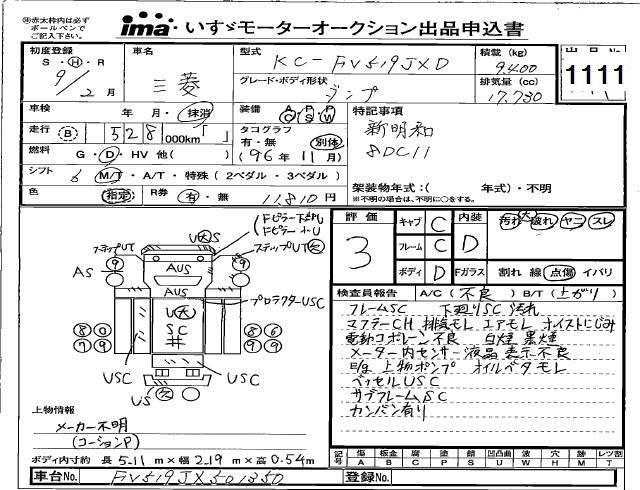 ※赤太枠内は必ず
ボールペンで
ご記入下さい。
ima いすゞモーターオークション出品申込書
初度登録
S・H・R
9/2月
車名
三菱
型式
KC-FV519JXD
グレード・ボディ形状
ダンプ
積載 (kg)
9,400
排気量 (cc)
17,730
1111
車検 年・月・抹消
走行 B 528 000km「 」
燃料 G・D・HV 他( )
シフト 6 M/T・A/T・特殊(2ペダル・3ペダル)
色 指定 R券 有・無 11,810円
装備 A/C P/S P/W
タコグラフ
有・無 別体
(96年11月)
特記事項
新明和
8DC11
架装物年式:( 年式)・不明
※不明の場合は、不明に○をする。
評価
3
キャブ C 内装 D
フレーム C
ボディ D Fガラス
汚れ 大 破れ ヤニ スレ
割れ 線 点傷 イバリ
検査員報告 A/C(不良)B/T(上がり)
フレームSC 下廻りSC 汚れ
マフラーCH 排気モレ エアモレ ホイストにじみ
電動コボレーン不良 白煙 黒煙
メーター内センサー液晶表示不良
E/g 上物ポンプ オイルベタモレ
ベッセルUSC
サブフレームSC
カンバン有り
ステップUT
U大S
ステップUT大
AS
9
AUS
9
AUS
プロテクターUSC
U大
SC
井
8 0 7 9
8 6 9 9
USC
USC
US大
上物情報
メーカー不明
(コーションP)
ボディ内寸約 長 5.11 m×幅 2.19 m×高 0.54m
記号 傷 A 板金 B 腐 C 塗 P 錆 S 凹凸曲 U 波 W 穴 H 跡 M レツ割 T
車台No. FV519JX501350
登録No.